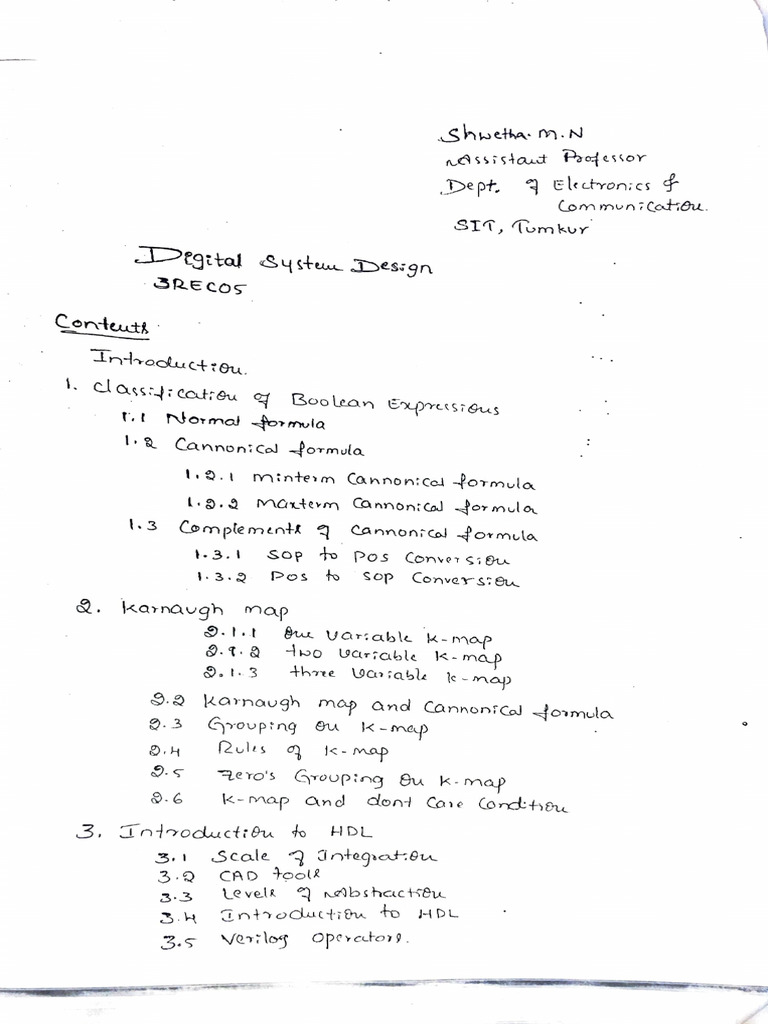 Shwetha. M. N
Assistant Professor
Dept. of Electronics &
Communication.
SIT, Tumkur
Digital System Design
3REC05
Contents
Introduction.
1. Classification of Boolean Expressions
1.1 Normal formula
1.2 Cannonical formula
1.2.1 Minterm Cannonical formula
1.2.2 Maxterm Cannonical formula
1.3 Complements of Cannonical formula
1.3.1 SOP to POS Conversion
1.3.2 POS to SOP Conversion
2. Karnaugh map
2.1.1 One Variable K-map
2.1.2 two Variable K-map
2.1.3 three Variable K-map
2.2 Karnaugh map and Cannonical formula
2.3 Grouping on K-map
2.4 Rules of K-map
2.5 Zero's Grouping on K-map
2.6 K-map and dont Care Condition
3. Introduction to HDL
3.1 Scale of Integration
3.2 CAD tools
3.3 Levels of Abstraction
3.4 Introduction to HDL
3.5 Verilog Operators.